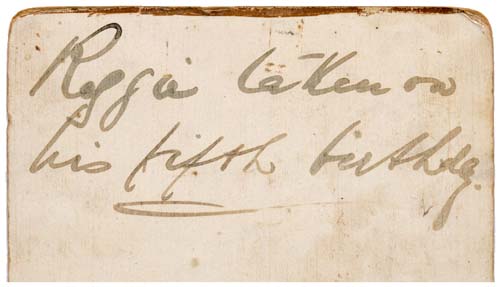 Reggie taken on
his fifth birthday.